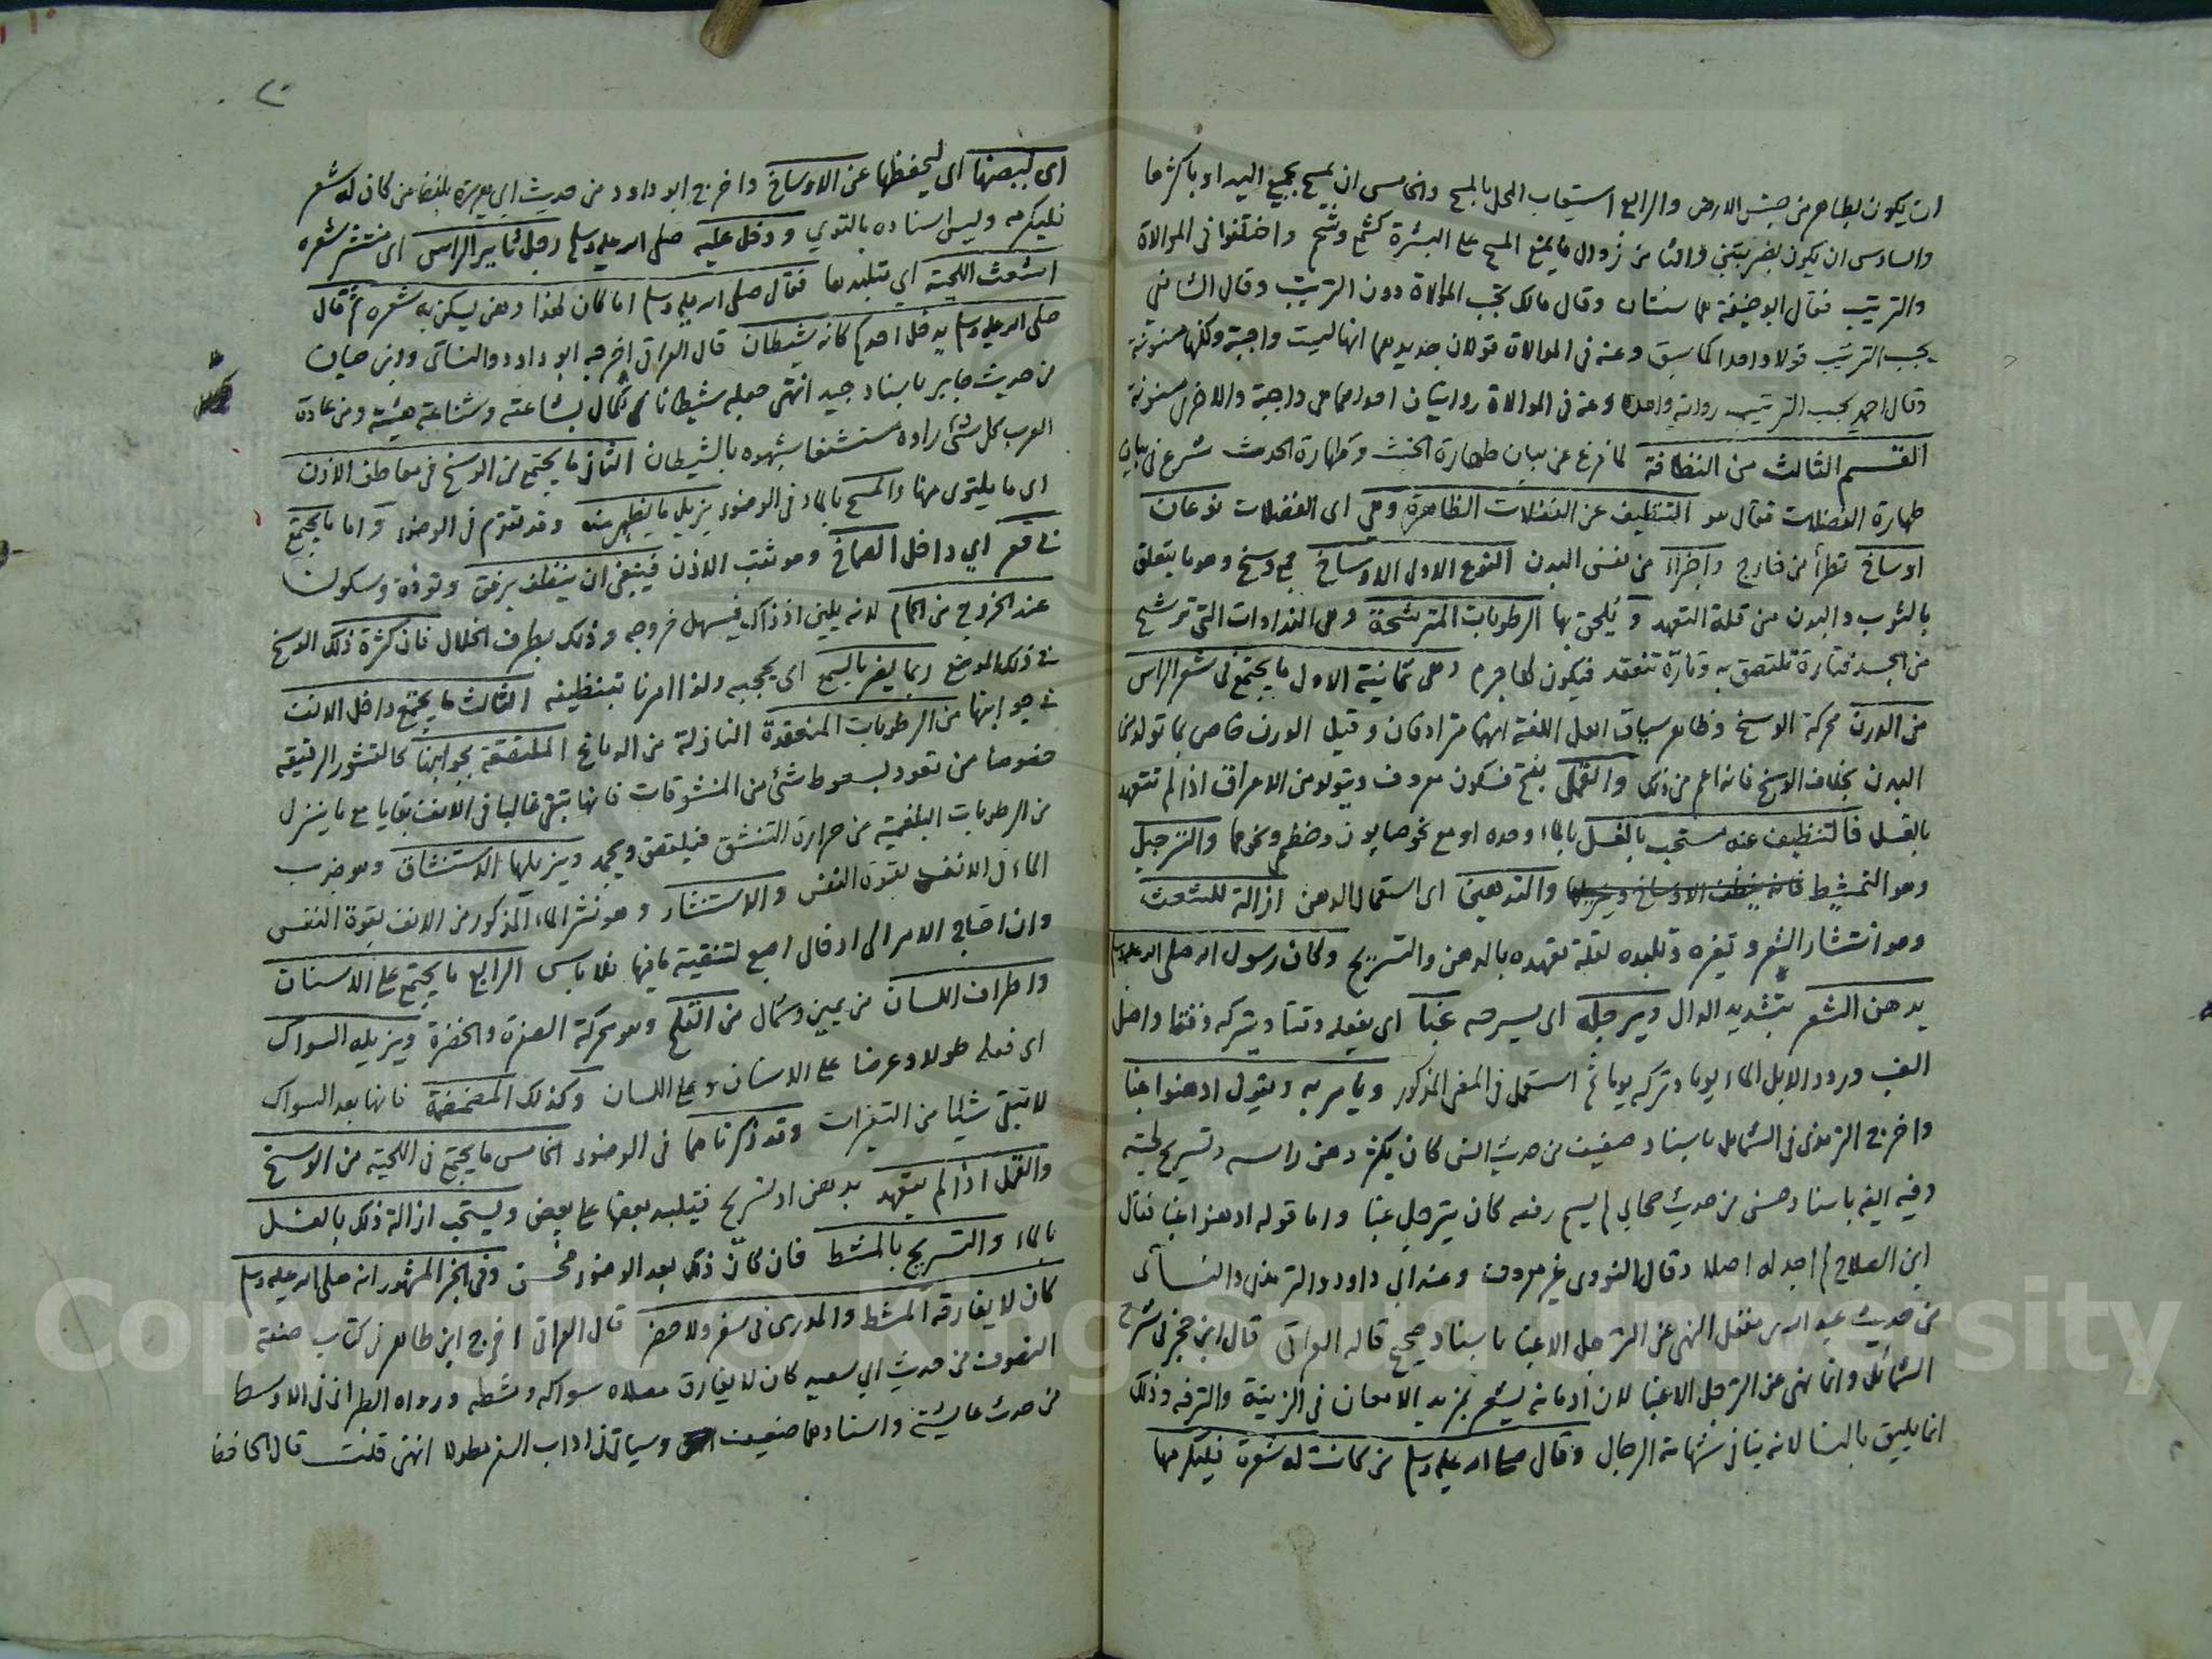 ان يكون بطاهر من جنس الارض والرابع استيعاب المحل بالمسح والخامس ان يمسح بجميع اليد او باكثرها
والسادس ان يكون بضربتين والثامن زوال ما يمنع المسح على البشرة كشمع وشحم واختلفوا في الموالاة
والترتيب فقال ابو حنيفة هما سنتان وقال مالك تجب الموالاة دون الترتيب وقال الشافعي
يجب الترتيب قولا واحدا كما سبق وعنه في الموالاة قولان جديدهما انها ليست واجبة ولكنها مسنونة
وقال احمد يجب الترتيب رواية واحدة وعنه في الموالاة روايتان احداهما هي واجبة والاخرى مسنونة
القسم الثالث من النظافة لما فرغ عن بيان طهارة الخبث وطهارة الحدث شرع في بيان
طهارة الفضلات فقال هو التنظيف عن الفضلات الظاهرة وهي اى الفضلات نوعان
اوساخ تطرأ من خارج واجزاء من نفس البدن النوع الاول الاوساخ جمع وسخ وهو ما يتعلق
بالثوب والبدن من قلة التعهد ويلحق بها الرطوبات المترشحة وهي النداوات التي ترشح
من الجسد فتارة تلتصق به وتارة تنعقد فيكون لها جرم وهي ثمانية الاول ما يجتمع في شعر الراس
من الدرن محركة الوسخ وظاهر سياق اهل اللغة انهما مترادفان وقيل الدرن خاص بما تولد من
البدن بخلاف الوسخ فانه اعم من ذلك والقمل بفتح فسكون معروف ويتولد من الاعراق اذا لم تتعهد
بالغسل فالتنظيف عنه مستحب بالغسل بالماء وحده او مع نحو صابون وخطم ونحوها والترجيل
وهو التمشيط فانه ينظف الاوساخ ويزيلها والتدهين اى استعمال الدهن ازالة للشعث
وهو انتشار الشعر وتغيره وتلبده لقلة تعهده بالدهن والتسريح وكان رسول الله صلى الله عليه وسلم
يدهن الشعر بتشديد الدال ويرجله اى يسرحه غبا اى يفعله وقتا ويتركه وقتا واصل
الغب ورود الابل الماء يوما وتركه يوما ثم استعمل في المعنى المذكور ويامر به ويقول ادهنوا غبا
واخرج الترمذى في الشمايل باسناد ضعيف من حديث انس كان يكثر دهن راسه وتسريح لحيته
وفيه ايضا باسناد حسن من حديث صحابي لم يسم رفعه كان يترجل غبا واما قوله ادهنوا غبا فقال
ابن الصلاح لم اجد له اصلا وقال النووى غير معروف وعند ابي داود والترمذى والنسائى
من حديث عبد الله بن مغفل النهى عن الترجل الا غبا باسناد صحيح قاله العراقى قال ابن حجر في شرح
الشمائل وانما نهى عن الترجل الا غبا لان ادمانه يشعر بمزيد الامعان في الزينة والترفه وذلك
انما يليق بالنسا لانه ينافي شهامة الرجال وقال صلى الله عليه وسلم من كانت له شعرة فليكرمها
٢٠
اى ليصنها اى ليحفظها عن الاوساخ واخرج ابو داود من حديث ابي هريرة بلفظ من كان له شعر
فليكرمه وليس اسناده بالقوي ودخل عليه صلى الله عليه وسلم رجل ثاير الراس اى منتشر شعره
اشعث اللحية اي متلبدها فقال صلى الله عليه وسلم اما كان لهذا دهن يسكن به شعره ثم قال
صلى الله عليه وسلم يدخل احدكم كانه شيطان قال العراقى اخرجه ابو داود والنسائى وابن حبان
من حديث جابر باسناد جيد انتهى جعله شيطانا لكمال بشاعته وشناعة هيئته ومن عادة
العرب كل شئ راوه مستشنعا شبهوه بالشيطان الثانى ما يجتمع من الوسخ في معاطف الاذن
اى ما يلتوى منها والمسح بالماء في الوضوء يزيل ما يظهر منه وقد تقدم في الوضوء واما ما يجتمع
في قعر اي داخل الصماخ وهو ثقب الاذن فينبغى ان ينظف برفق وتؤدة وسكون
عند الخروج من الحمام لانه يلين اذ ذاك فيسهل خروجه وذلك بطرف الخلال فان كثرة ذلك الوسخ
في ذلك الموضع ربما يضر بالسمع اى يحجبه ولذا امرنا بتنظيفه الثالث ما يجتمع داخل الانف
في جوانبها من الرطوبات المنعقدة النازلة من الدماغ الملتصقة بجوانبها كالقشور الرقيقة
خصوصا من تعود بسعوط شئ من المنشوقات فانها تبقى غالبا في الانف بقايا مع ما ينزل
من الرطوبات البلغمية من حرارة التنشق فيلتصق ويجمد ويزيلها الاستنشاق وهو جذب
الماء في الانف بقوة النفس والاستنثار وهو نشر الماء المذكور من الانف بقوة النفس
وان احتاج الامر الى ادخال اصبع لتنقية ما فيها فلا باس الرابع ما يجتمع على الاسنان
واطراف اللسان من يمين وشمال من القلح وهو محركة الصفرة والخضرة ويزيله السواك
اى فعله طولا وعرضا على الاسنان وعلى اللسان وكذلك المضمضة فانها بعد السواك
لا تبقى شيئا من التغيرات وقد ذكرناهما في الوضوء الخامس ما يجتمع في اللحية من الوسخ
والقمل اذا لم يتعهد بدهن او تسريح فيتلبد بعضها على بعض ويستحب ازالة ذلك بالغسل
بالماء والتسريح بالمشط فان كان ذلك بعد الوضوء فحسن وفي الخبر المشهور انه صلى الله عليه وسلم
كان لا يفارقه المشط والمدرى في سفر ولا حضر قال العراقى اخرج ابن طاهر في كتاب صفة
التصوف من حديث ابي سعيد كان لا يفارق مصلاه سواكه ومشطه ورواه الطبرانى في الاوسط
من حديث عايشة واسنادهما ضعيف وسياتى في اداب السفر مطولا انتهى قلت قال الحافظ
Copyright © King Saud University